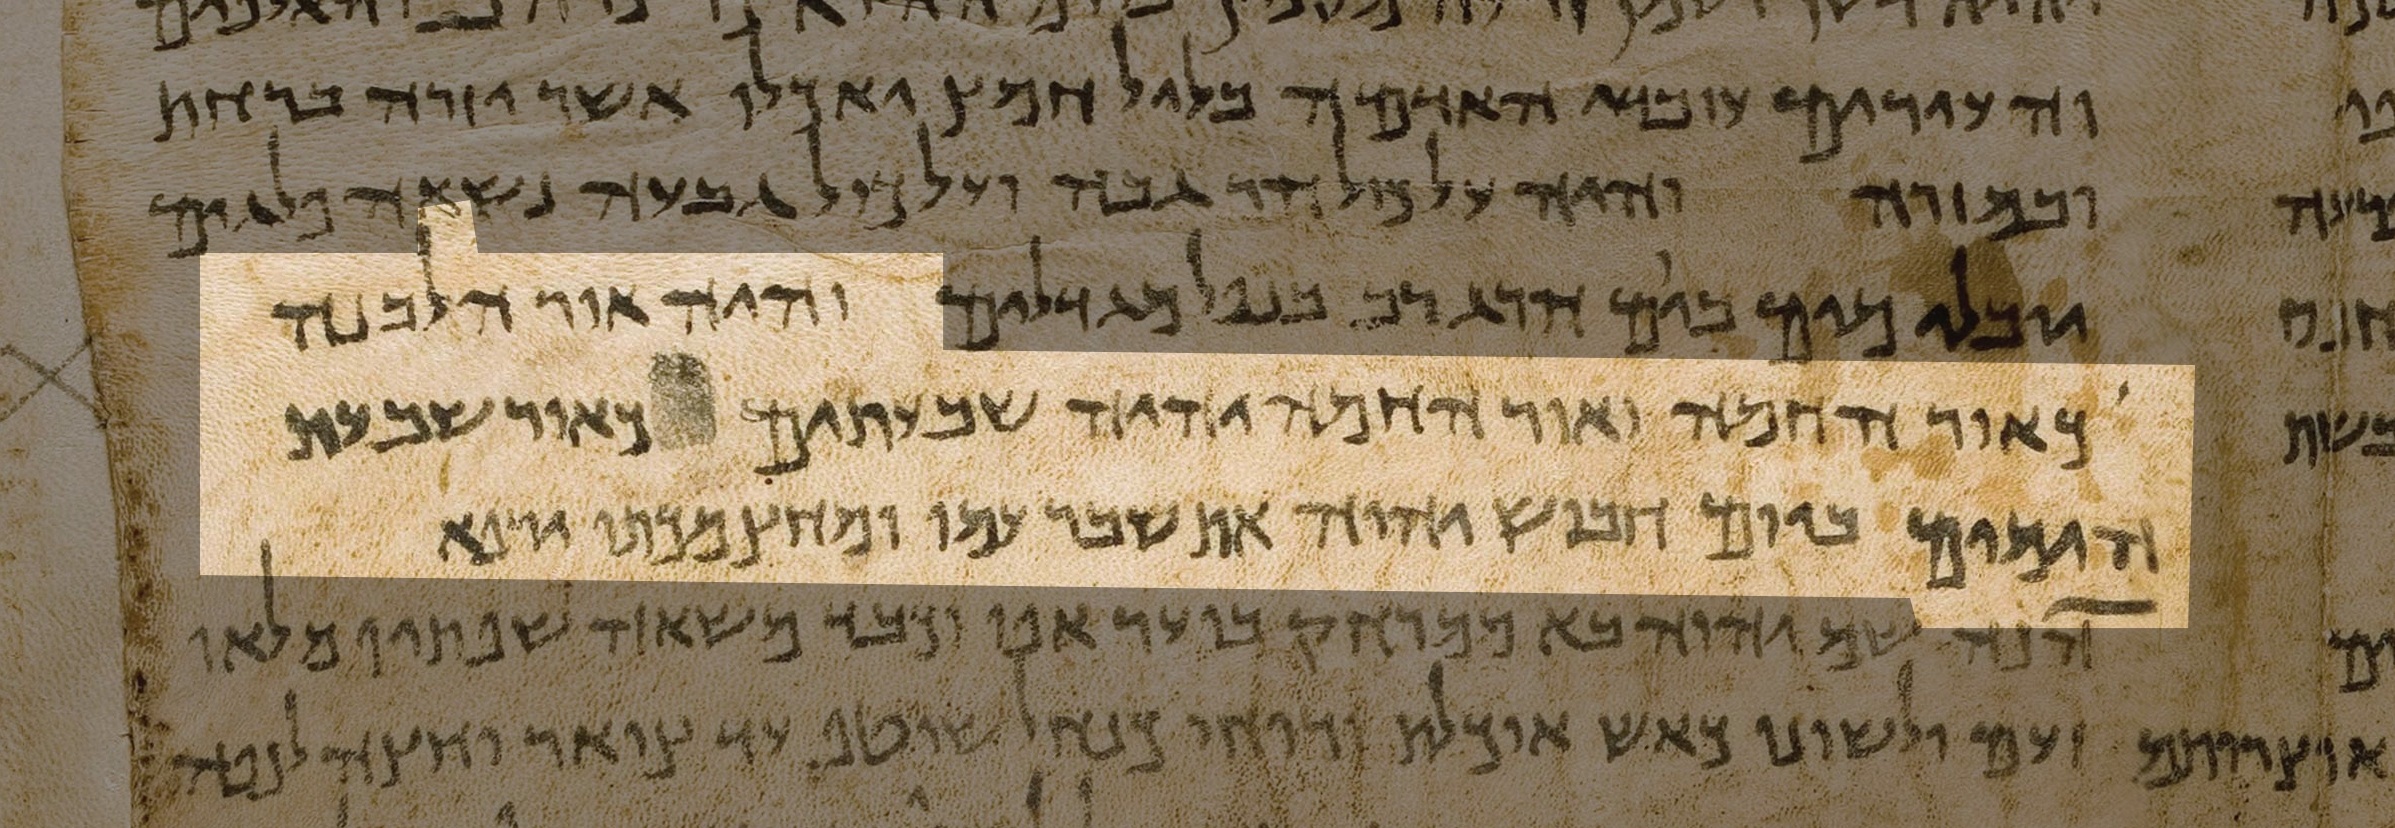 וה עירותים עובדי האדמה בלול חמיץ יאכלו אשר יזרה ברחת
ובמזורה והיה על כול הר גבה ועל כול גבעה נשאה פלגים
יובלי מים ביום הרג רב בנפל מגדלים והיה אור הלבנה
כאור החמה ואור החמה יהיה שבעתים כאור שבעת
הימים ביום חבוש יהוה את שבר עמו ומחץ מכתו ירפא
הנה שם יהוה בא ממרחק בוער אפו וכבד משאוה שפתיו מלאו
זעם ולשונו כאש אוכלת ורוחו כנחל שוטף עד צואר יחצה לנפה